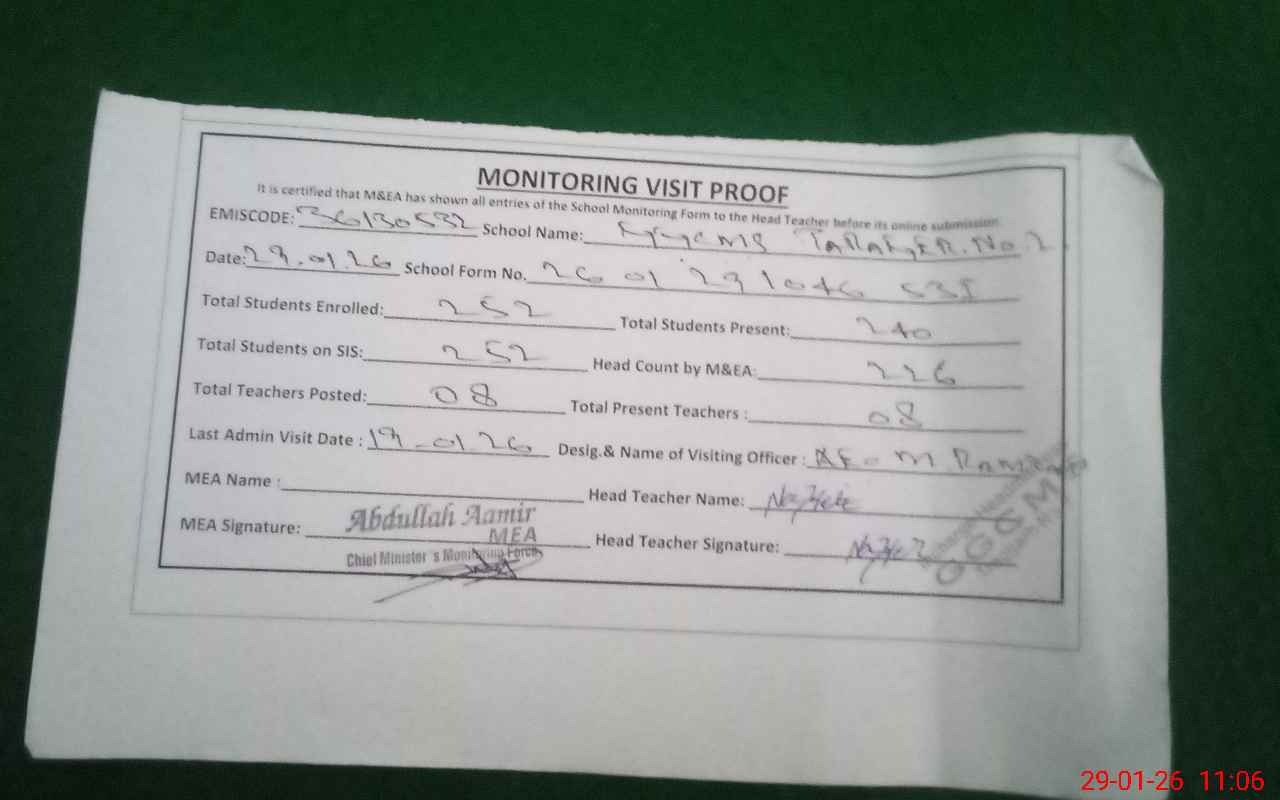 MONITORING VISIT PROOF
It is certified that M&EA has shown all entries of the School Monitoring Form to the Head Teacher before its online submission.
EMISCODE: 36130532 School Name: No. 2
Date: 29.01.26 School Form No. 26 01 291046 535
Total Students Enrolled: 252 Total Students Present: 240
Total Students on SIS: 252 Head Count by M&EA: 226
Total Teachers Posted: 08 Total Present Teachers : 08
Last Admin Visit Date : 19-01.26 Desig.& Name of Visiting Officer :
MEA Name : Head Teacher Name:
Abdullah Aamir
MEA
MEA Signature: Head Teacher Signature:
Chief Minister's Monitoring Force
29-01-26 11:06